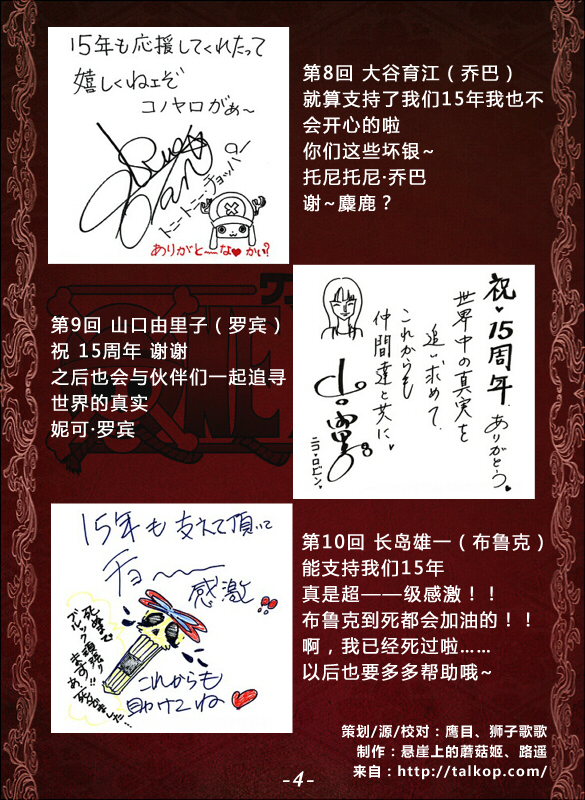 15年も応援してくれたって
嬉しくねェぞ
コノヤロがぁ〜
トニートニー・チョッパー
ありがと〜な♥かい?
第8回 大谷育江（乔巴）
就算支持了我们15年我也不
会开心的啦
你们这些坏银~
托尼托尼·乔巴
谢~麋鹿？
第9回 山口由里子（罗宾）
祝 15周年 谢谢
之后也会与伙伴们一起追寻
世界的真实
妮可·罗宾
祝♥15周年 ありがとう♥
世界中の真実を
追い求めて
これからも
仲間達と共に♥
ニコ・ロビン♥
15年も支えて頂いて
チョ〜
感激!!
死ぬまで
ブルック頑張り
ます!!
これからも
助けてね♥
第10回 长岛雄一（布鲁克）
能支持我们15年
真是超——级感激！！
布鲁克到死都会加油的！！
啊，我已经死过啦……
以后也要多多帮助哦~
策划/源/校对：鹰目、狮子歌歌
制作：悬崖上的蘑菇姬、路遥
来自：http://talkop.com/
-4-